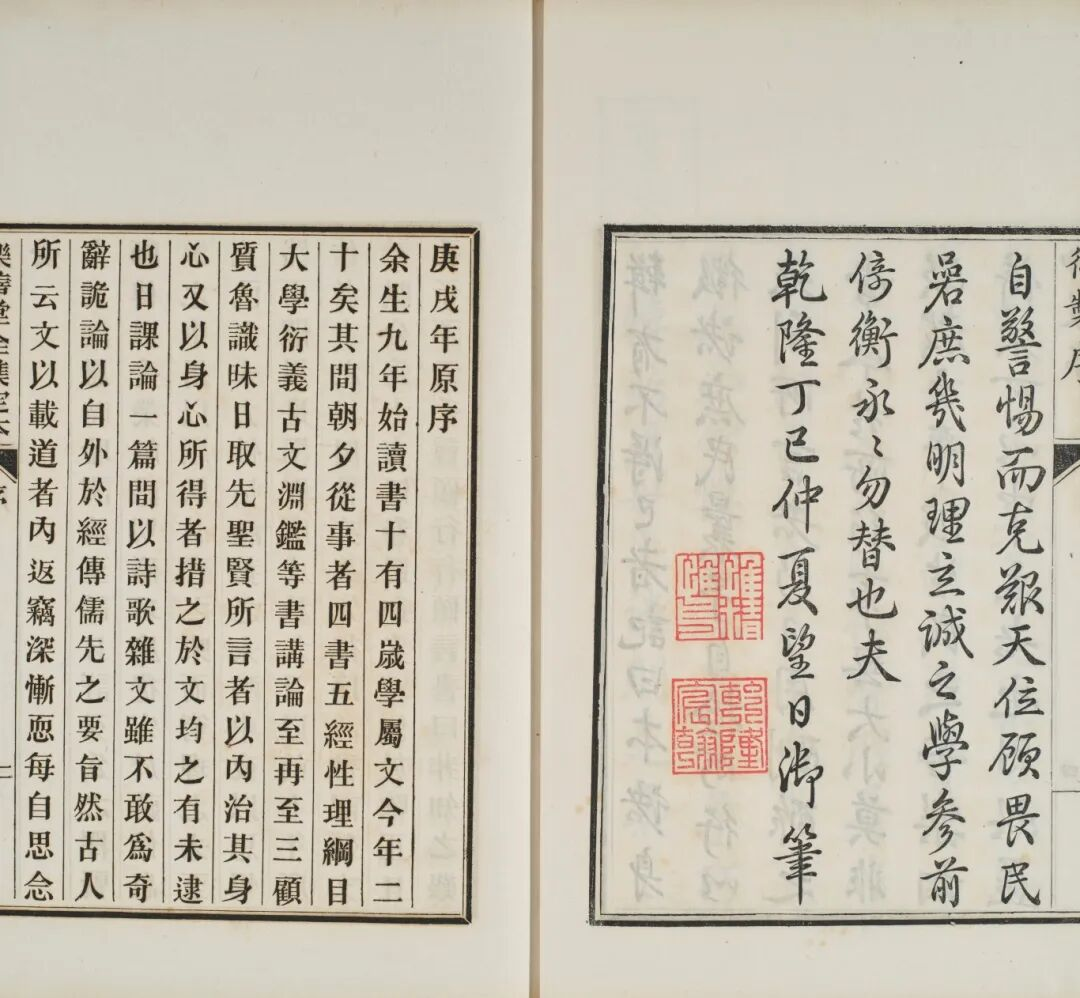 御製序
自警惕而克艱天位顧畏民
碞庶幾明理立誠之學參前
倚衡永〻勿替也夫
乾隆丁巳仲夏望日御筆
惟精惟一
乾隆宸翰
庚戌年原序
余生九年始讀書十有四歲學屬文今年二
十矣其間朝夕從事者四書五經性理綱目
大學衍義古文淵鑑等書講論至再至三顧
質魯識昧日取先聖賢所言者以內治其身
心又以身心所得者措之於文均之有未逮
也日課論一篇間以詩歌雜文雖不敢爲奇
辭詭論以自外於經傳儒先之要旨然古人
所云文以載道者內返竊深慚恧每自思念
樂善堂全集定本 序